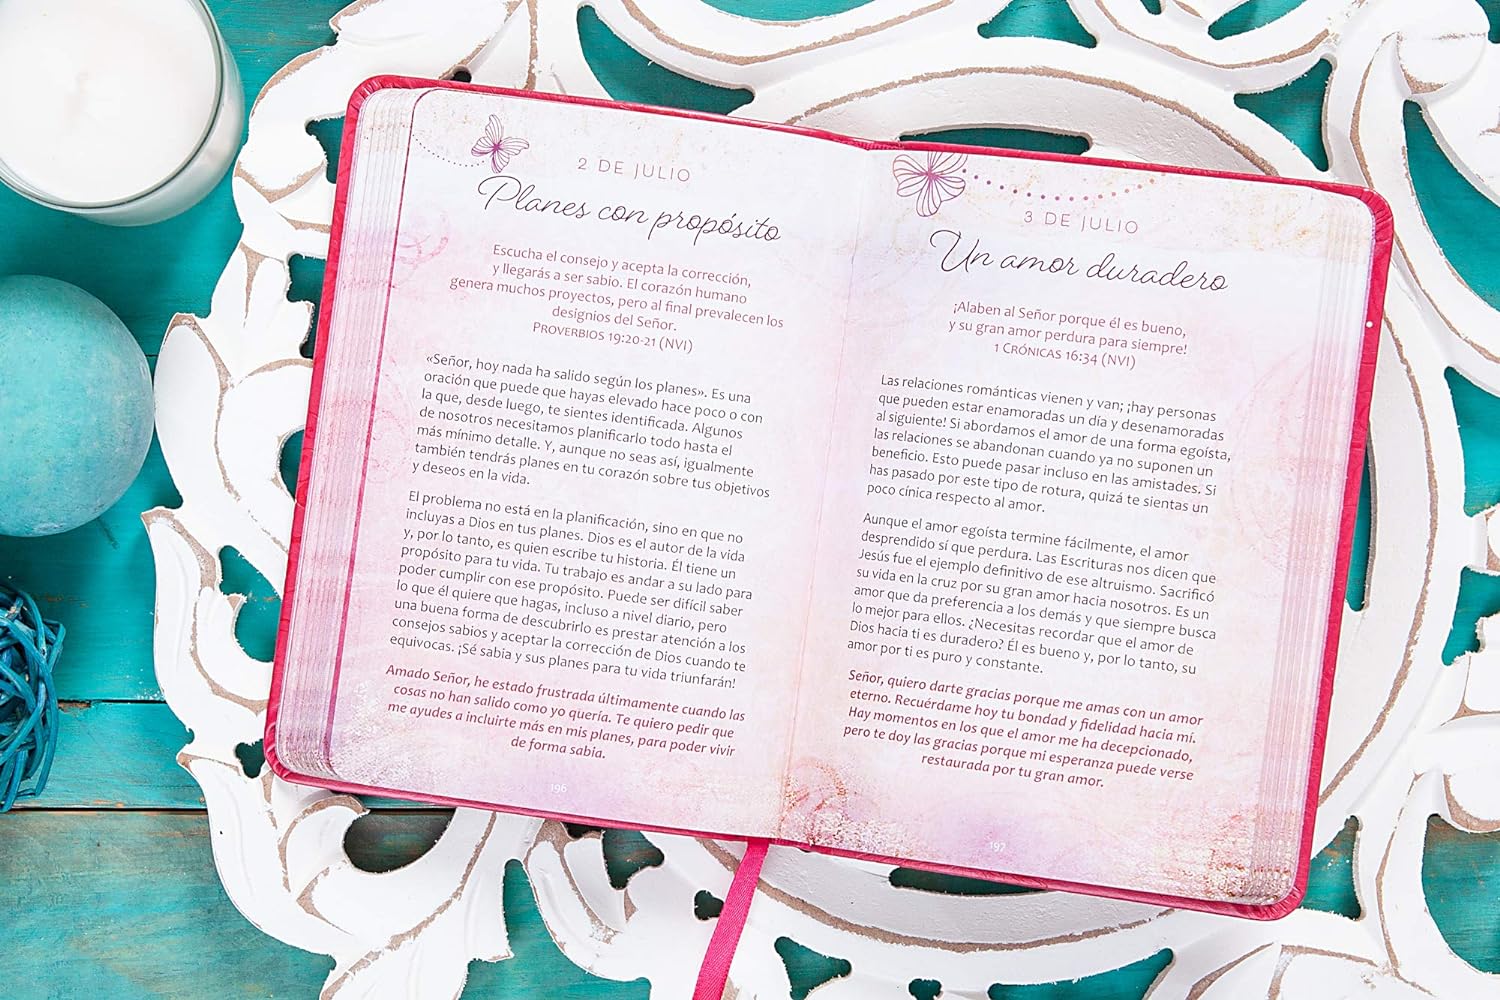 2 DE JULIO
Planes con propósito
Escucha el consejo y acepta la corrección,
y llegarás a ser sabio. El corazón humano
genera muchos proyectos, pero al final prevalecen los
designios del Señor.
PROVERBIOS 19:20-21 (NVI)
«Señor, hoy nada ha salido según los planes». Es una
oración que puede que hayas elevado hace poco o con
la que, desde luego, te sientes identificada. Algunos
de nosotros necesitamos planificarlo todo hasta el
más mínimo detalle. Y, aunque no seas así, igualmente
también tendrás planes en tu corazón sobre tus objetivos
y deseos en la vida.
El problema no está en la planificación, sino en que no
incluyas a Dios en tus planes. Dios es el autor de la vida
y, por lo tanto, es quien escribe tu historia. Él tiene un
propósito para tu vida. Tu trabajo es andar a su lado para
poder cumplir con ese propósito. Puede ser difícil saber
lo que él quiere que hagas, incluso a nivel diario, pero
una buena forma de descubrirlo es prestar atención a los
consejos sabios y aceptar la corrección de Dios cuando te
equivocas. ¡Sé sabia y sus planes para tu vida triunfarán!
Amado Señor, he estado frustrada últimamente cuando las
cosas no han salido como yo quería. Te quiero pedir que
me ayudes a incluirte más en mis planes, para poder vivir
de forma sabia.
196
3 DE JULIO
Un amor duradero
¡Alaben al Señor porque él es bueno,
y su gran amor perdura para siempre!
1 CRÓNICAS 16:34 (NVI)
Las relaciones románticas vienen y van; ¡hay personas
que pueden estar enamoradas un día y desenamoradas
al siguiente! Si abordamos el amor de una forma egoísta,
las relaciones se abandonan cuando ya no suponen un
beneficio. Esto puede pasar incluso en las amistades. Si
has pasado por este tipo de rotura, quizá te sientas un
poco cínica respecto al amor.
Aunque el amor egoísta termine fácilmente, el amor
desprendido sí que perdura. Las Escrituras nos dicen que
Jesús fue el ejemplo definitivo de ese altruismo. Sacrificó
su vida en la cruz por su gran amor hacia nosotros. Es un
amor que da preferencia a los demás y que siempre busca
lo mejor para ellos. ¿Necesitas recordar que el amor de
Dios hacia ti es duradero? Él es bueno y, por lo tanto, su
amor por ti es puro y constante.
Señor, quiero darte gracias porque me amas con un amor
eterno. Recuérdame hoy tu bondad y fidelidad hacia mí.
Hay momentos en los que el amor me ha decepcionado,
pero te doy las gracias porque mi esperanza puede verse
restaurada por tu gran amor.
197